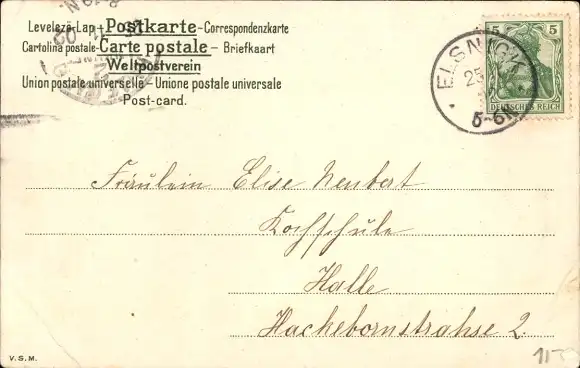 Levelező-Lap - Postkarte - Correspondenzkarte
Cartolina postale - Carte postale - Briefkaart
Weltpostverein
Union postale universelle - Unione postale universale
Post-card.
5 5
DEUTSCHES REICH
ELSNIGK
25
5-6N
8-9N.
Fräulein Elise Neubert
Kochschule
Halle
Hackebornstrahse 2.
V.S.M.